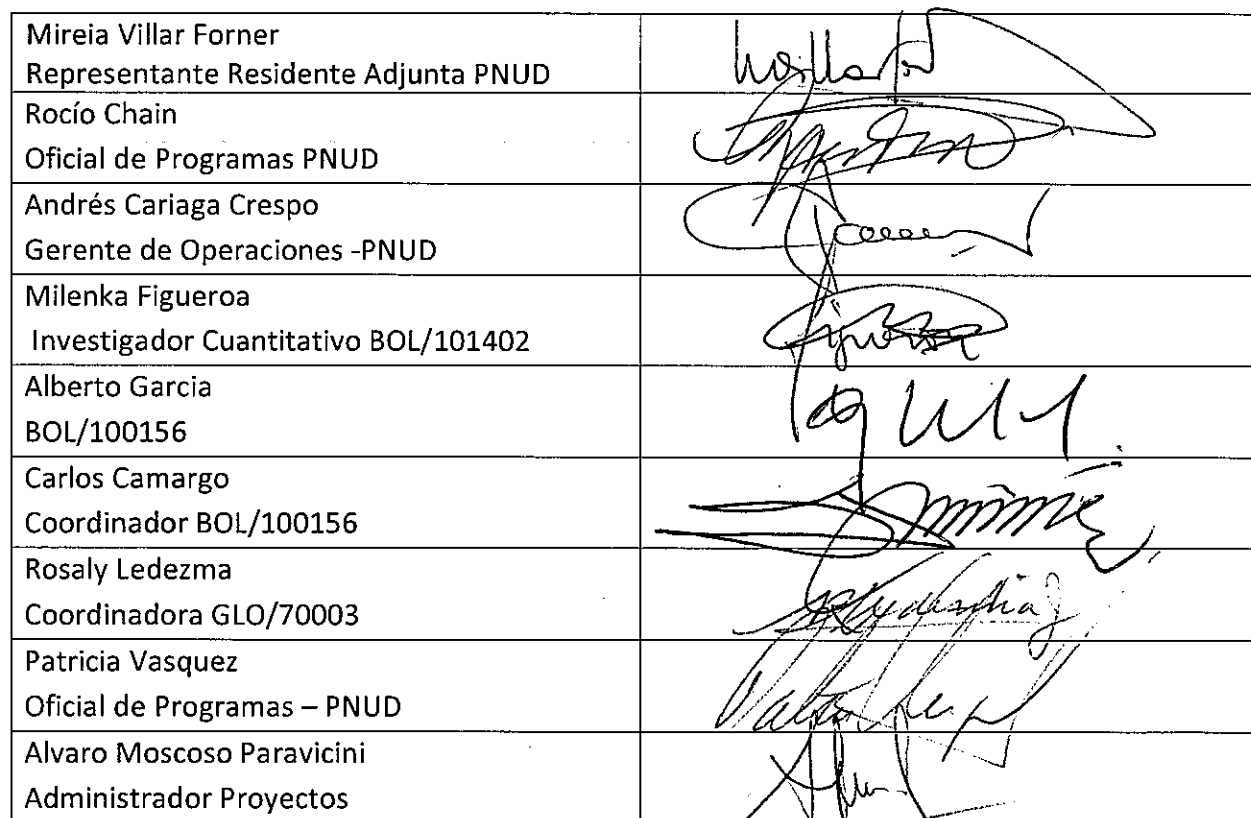 Mireia Villar Forner
Representante Residente Adjunta PNUD
Rocío Chain
Oficial de Programas PNUD
Andrés Cariaga Crespo
Gerente de Operaciones -PNUD
Milenka Figueroa
Investigador Cuantitativo BOL/101402
Alberto Garcia
BOL/100156
Carlos Camargo
Coordinador BOL/100156
Rosaly Ledezma
Coordinadora GLO/70003
Patricia Vasquez
Oficial de Programas – PNUD
Alvaro Moscoso Paravicini
Administrador Proyectos